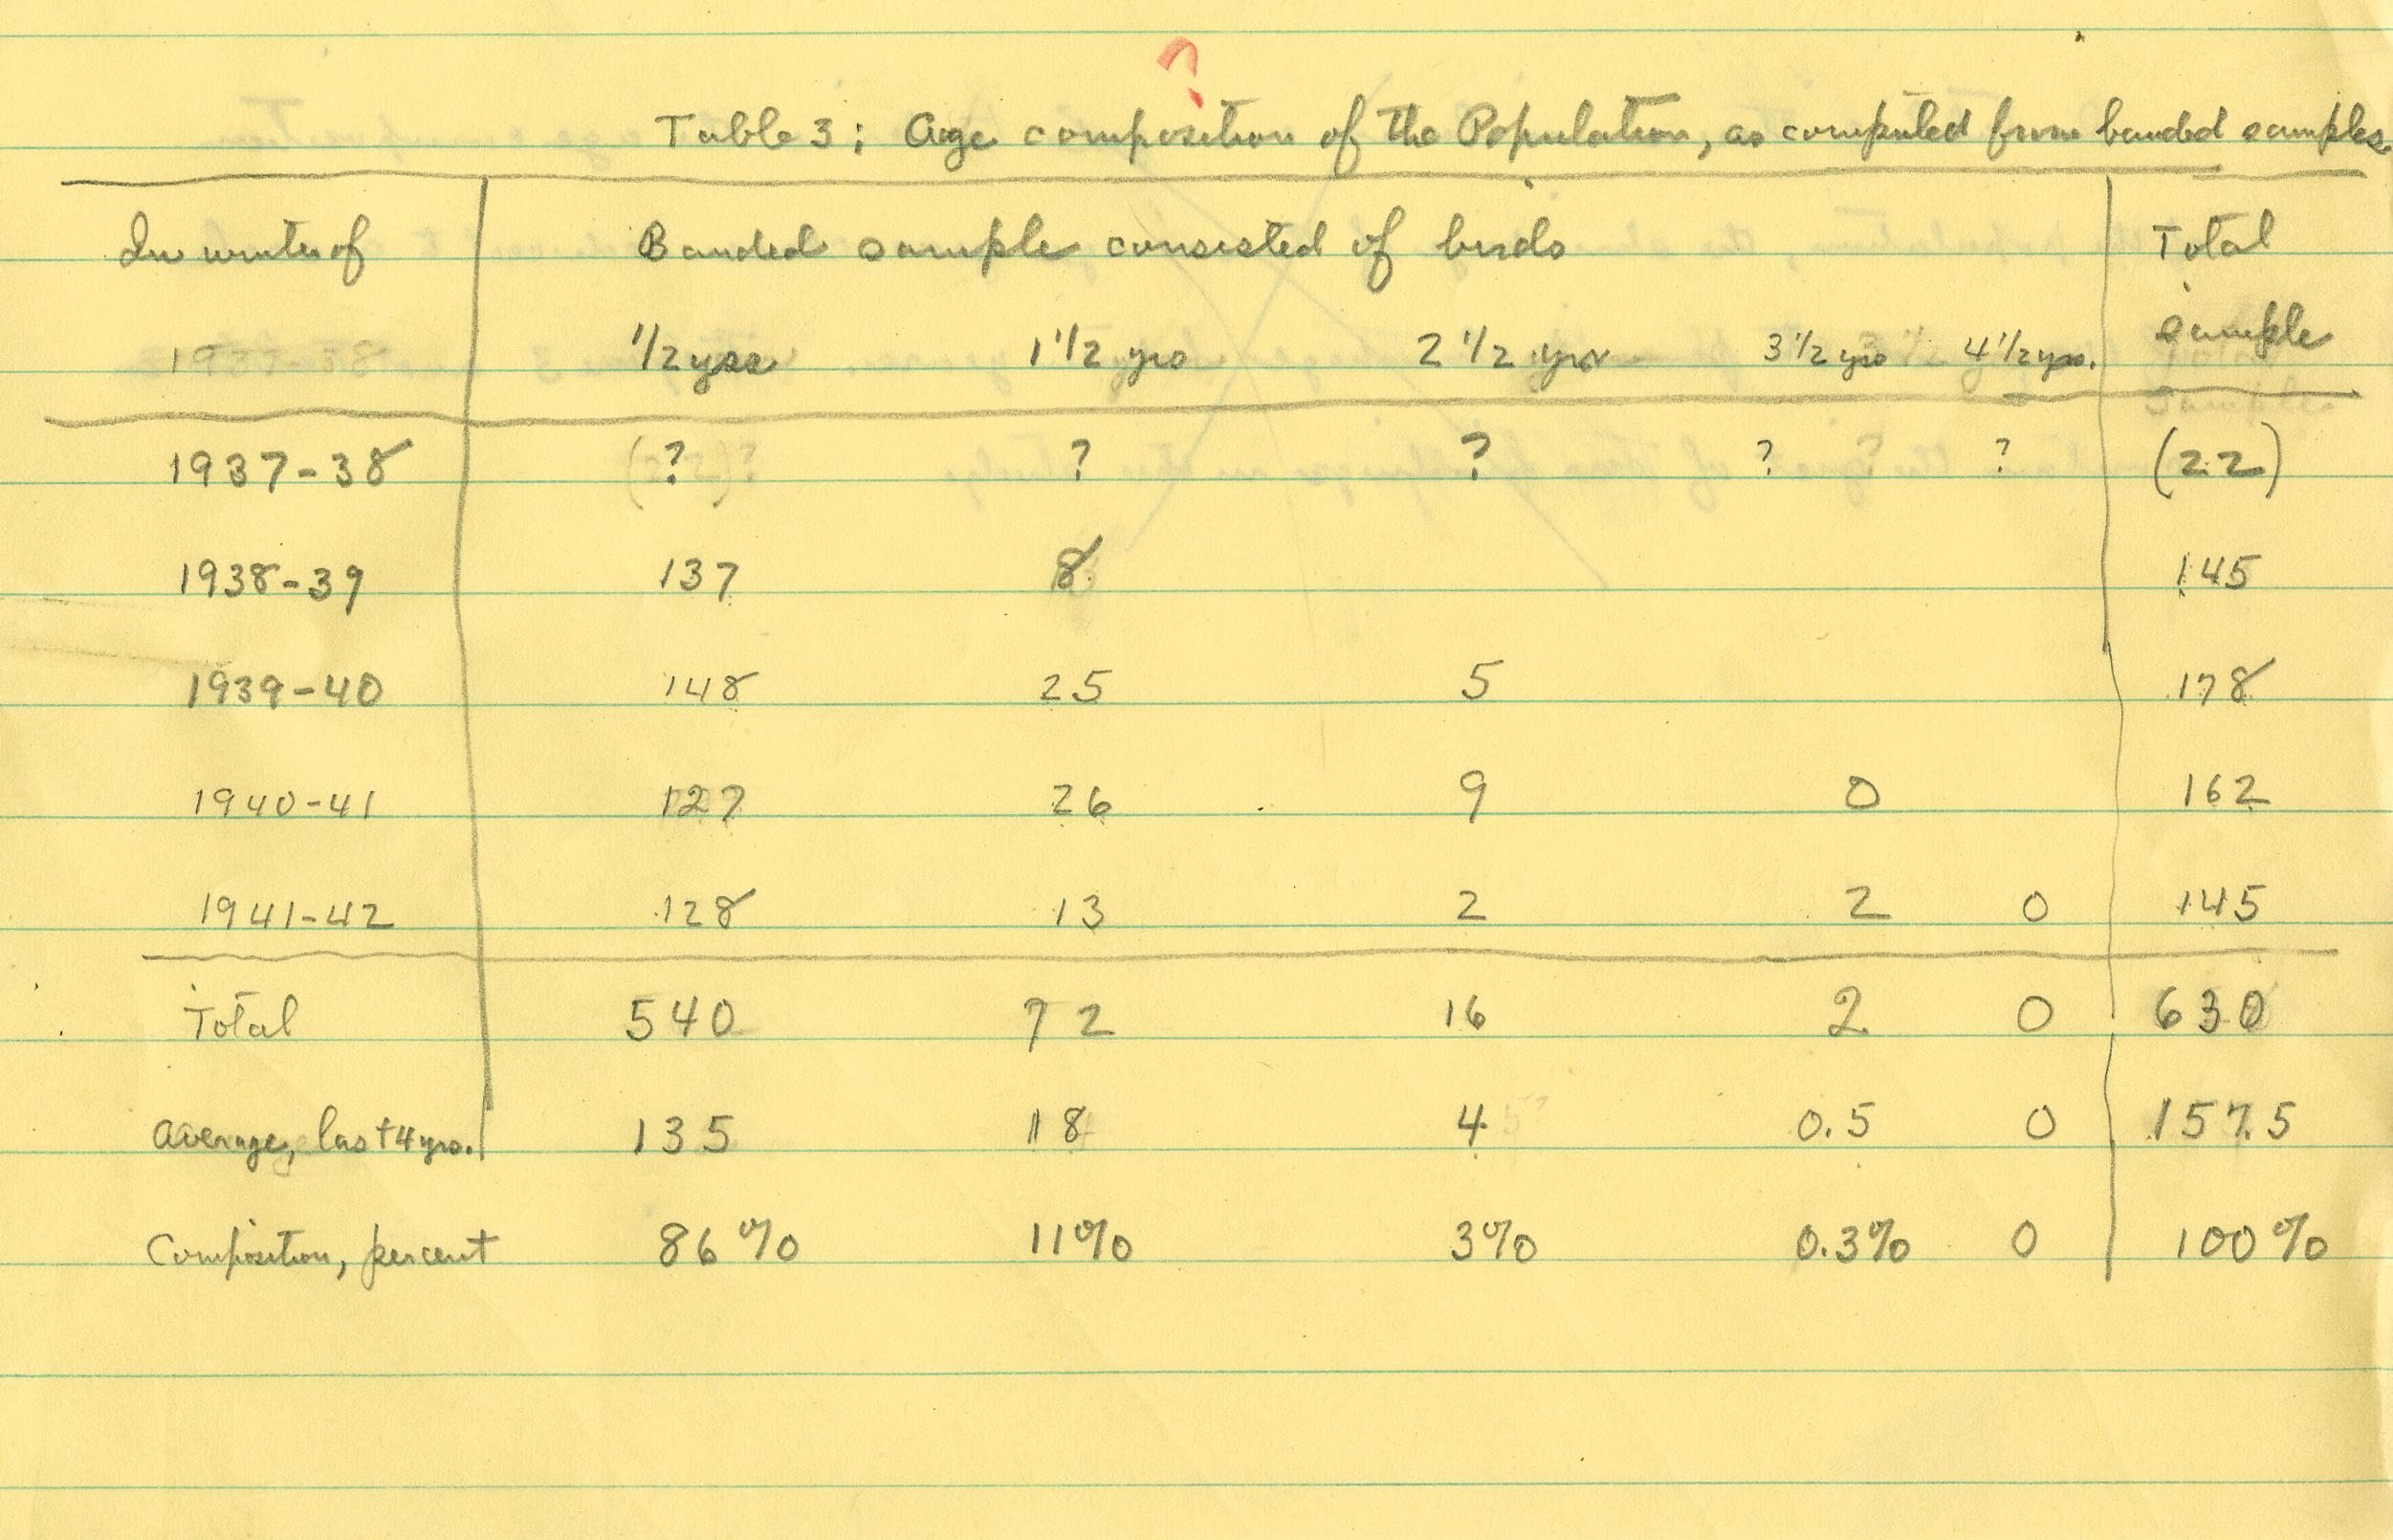 ?
Table 3: Age composition of the Population, as computed from banded samples
In winter of Banded sample consisted of birds Total
1/2 yrs 1 1/2 yrs 2 1/2 yrs 3 1/2 yrs 4 1/2 yrs. sample
1937-38 ? ? ? ? ? (22)
1938-39 137 8 145
1939-40 148 25 5 178
1940-41 127 26 9 0 162
1941-42 128 13 2 2 0 145
Total 540 72 16 2 0 630
Average, last 4 yrs. 135 18 4 0.5 0 157.5
Composition, percent 86% 11% 3% 0.3% 0 100%